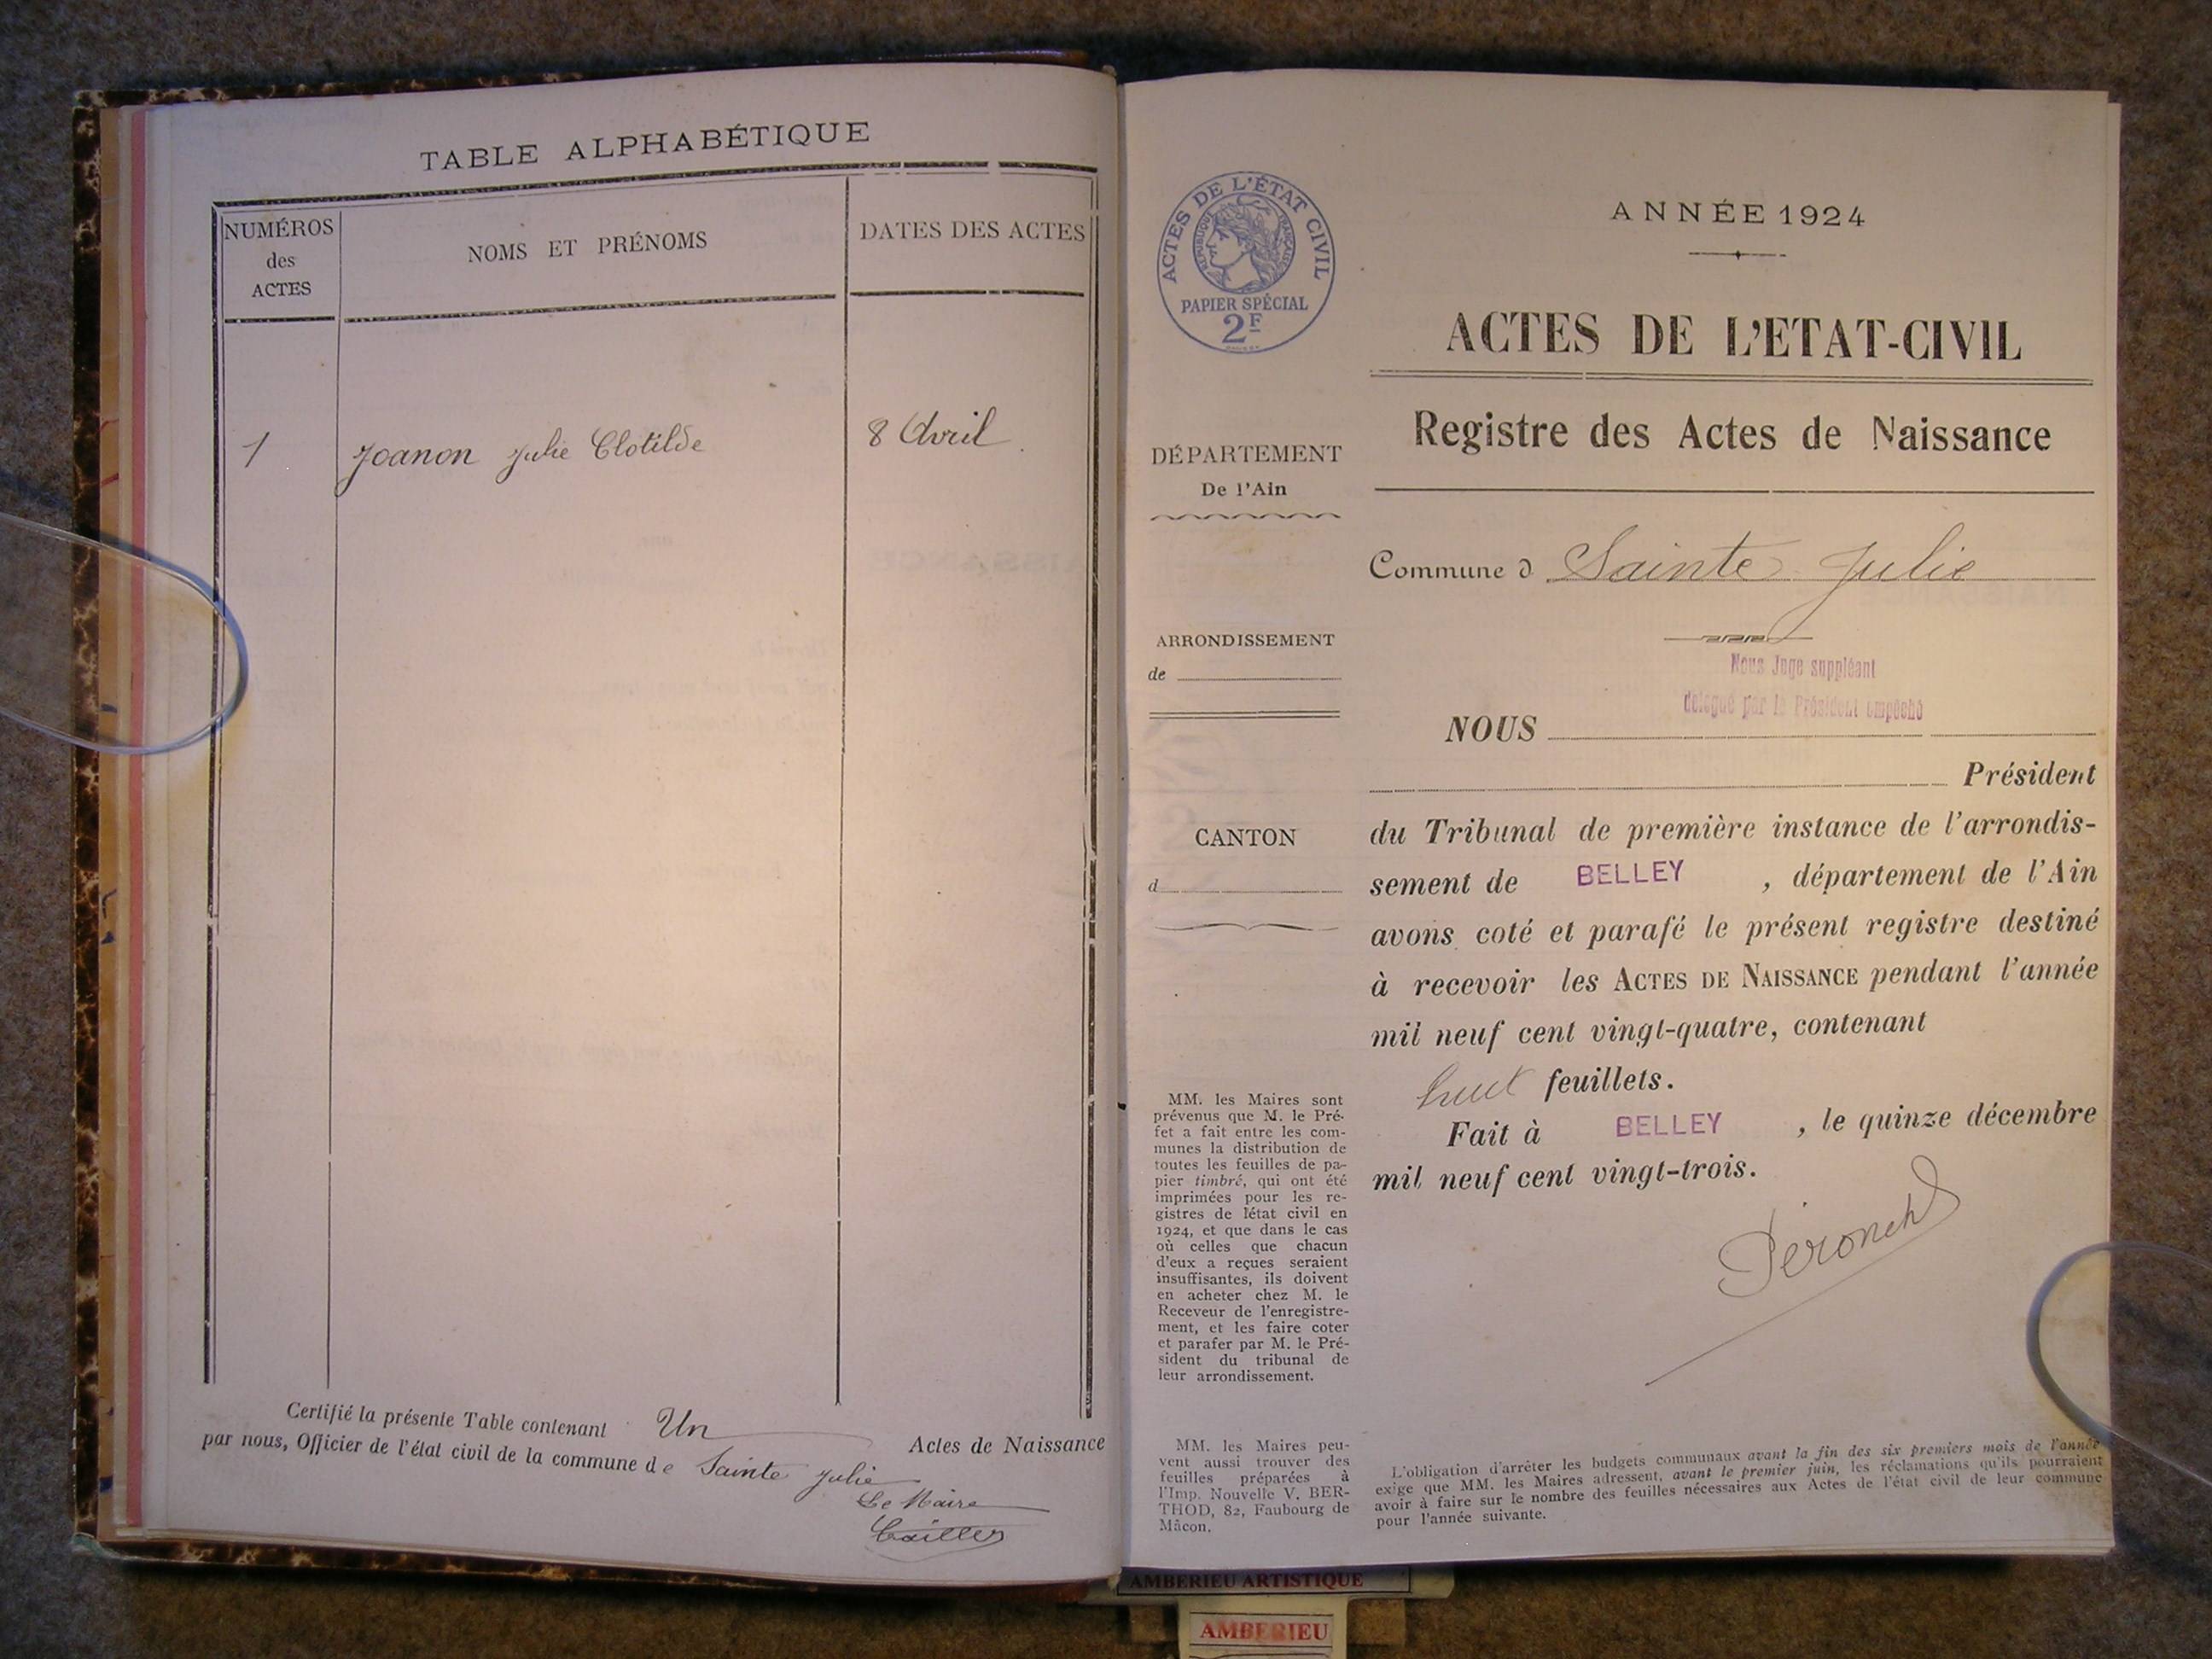 TABLE ALPHABÉTIQUE
NUMÉROS
des
ACTES
NOMS ET PRÉNOMS
DATES DES ACTES
1 Joanon Julie Clotilde 8 Avril
Certifié la présente Table contenant Un Actes de Naissance
par nous, Officier de l'état civil de la commune de Sainte Julie
Le Maire
ACTES DE L'ÉTAT CIVIL
RÉPUBLIQUE FRANÇAISE
PAPIER SPÉCIAL
2F
DÉPARTEMENT
De l'Ain
ARRONDISSEMENT
de
CANTON
d
MM. les Maires sont
prévenus que M. le Pré-
fet a fait entre les com-
munes la distribution de
toutes les feuilles de pa-
pier timbré, qui ont été
imprimées pour les re-
gistres de l'état civil en
1924, et que dans le cas
où celles que chacun
d'eux a reçues seraient
insuffisantes, ils doivent
en acheter chez M. le
Receveur de l'enregistre-
ment, et les faire coter
et parafer par M. le Pré-
sident du tribunal de
leur arrondissement.
MM. les Maires peu-
vent aussi trouver des
feuilles préparées à
l'Imp. Nouvelle V. BER-
THOD, 82, Faubourg de
Mâcon.
ANNÉE 1924
ACTES DE L'ETAT-CIVIL
Registre des Actes de Naissance
Commune d Sainte Julie
Nous Juge suppléant
délégué par le Président empêché
NOUS
Président
du Tribunal de première instance de l'arrondis-
sement de BELLEY , département de l'Ain
avons coté et parafé le présent registre destiné
à recevoir les ACTES DE NAISSANCE pendant l'année
mil neuf cent vingt-quatre, contenant
huit feuillets.
Fait à BELLEY , le quinze décembre
mil neuf cent vingt-trois.
L'obligation d'arrêter les budgets communaux avant la fin des six premiers mois de l'année
exige que MM. les Maires adressent, avant le premier juin, les réclamations qu'ils pourraient
avoir à faire sur le nombre des feuilles nécessaires aux Actes de l'état civil de leur commune
pour l'année suivante.
AMBERIEU ARTISTIQUE
AMBERIEU